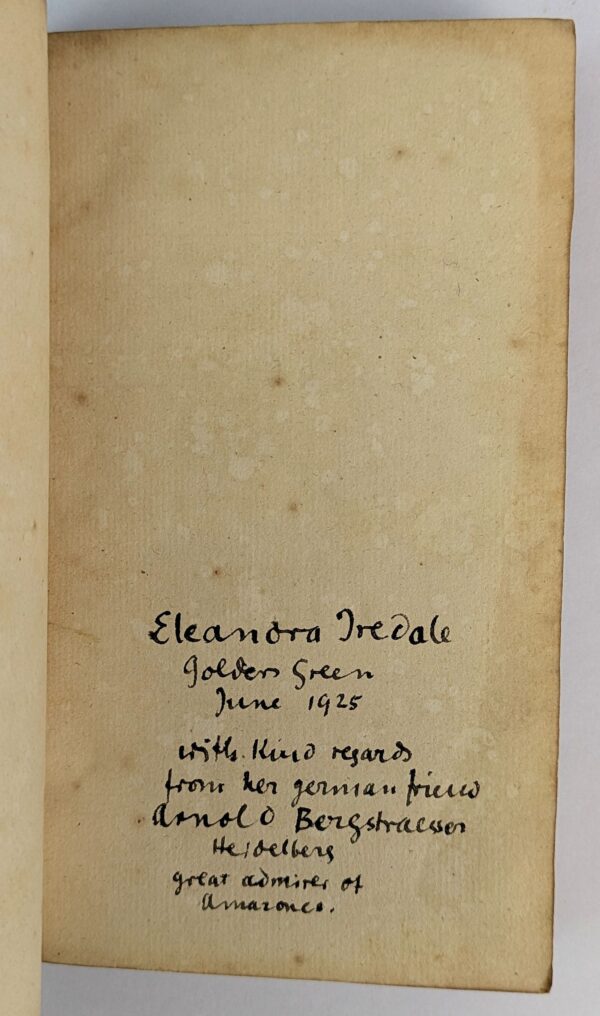 Eleandra Iredale
Golders Green
June 1925
with kind regards
from her german friend
Arnold Bergstraesser
Heidelberg
great admirer of
Amazones.